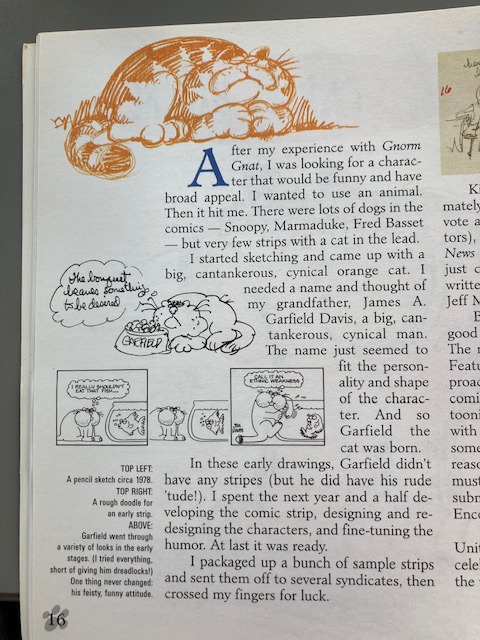 After my experience with Gnorm
Gnat, I was looking for a charac-
ter that would be funny and have
broad appeal. I wanted to use an animal.
Then it hit me. There were lots of dogs in the
comics — Snoopy, Marmaduke, Fred Basset
— but very few strips with a cat in the lead.
I started sketching and came up with a
big, cantankerous, cynical orange cat. I
needed a name and thought of
my grandfather, James A.
Garfield Davis, a big, can-
tankerous, cynical man.
The name just seemed to
fit the person-
ality and shape
of the charac-
ter. And so
Garfield the
cat was born.
In these early drawings, Garfield didn't
have any stripes (but he did have his rude
'tude!). I spent the next year and a half de-
veloping the comic strip, designing and re-
designing the characters, and fine-tuning the
humor. At last it was ready.
I packaged up a bunch of sample strips
and sent them off to several syndicates, then
crossed my fingers for luck.
The bouquet
leaves something
to be desired
GARFIELD
I REALLY SHOULDN'T
EAT THAT FISH...
CALL IT AN
ETHNIC WEAKNESS
JIM
DAVIS
TOP LEFT:
A pencil sketch circa 1978.
TOP RIGHT:
A rough doodle for
an early strip.
ABOVE:
Garfield went through
a variety of looks in the early
stages. (I tried everything,
short of giving him dreadlocks!)
One thing never changed:
his feisty, funny attitude.
16
16
Ki
mately
vote a
tors),
News
just c
writte
Jeff M
E
good
The r
Featu
proac
comi
tooni
with
some
reaso
must
subn
Ence
Unit
celel
the